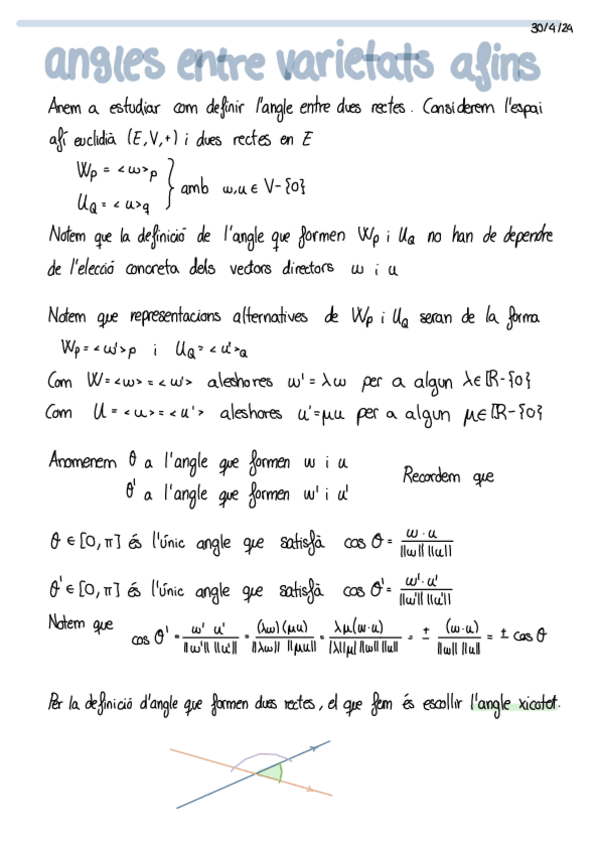 30/4/24
angles entre varietats afins
Anem a estudiar com definir l'angle entre dues rectes. Considerem l'espai
afí euclidià (E,V,+) i dues rectes en E
Wp = <w>p
UQ = <u>q } amb w,u ∈ V-{0}
Notem que la definició de l'angle que formen Wp i UQ no han de dependre
de l'elecció concreta dels vectors directors w i u
Notem que representacions alternatives de Wp i UQ seran de la forma
Wp = <w'>p i UQ = <u'>Q
Com W = <w> = <w'> aleshores w' = λw per a algun λ∈ℝ-{0}
Com U = <u> = <u'> aleshores u' = μu per a algun μ∈ℝ-{0}
Anomenem θ a l'angle que formen w i u
θ' a l'angle que formen w' i u' Recordem que
θ ∈ [0,π] és l'únic angle que satisfà cos θ = w·u / ||w|| ||u||
θ' ∈ [0,π] és l'únic angle que satisfà cos θ' = w'·u' / ||w'|| ||u'||
Notem que cos θ' = w' u' / ||w'|| ||u'|| = (λw)(μu) / ||λw|| ||μu|| = λμ(w·u) / |λ||μ| ||w|| ||u|| = ± (w·u) / ||w|| ||u|| = ± cos θ
Per la definició d'angle que formen dues rectes, el que fem és escollir l'angle xicotet.